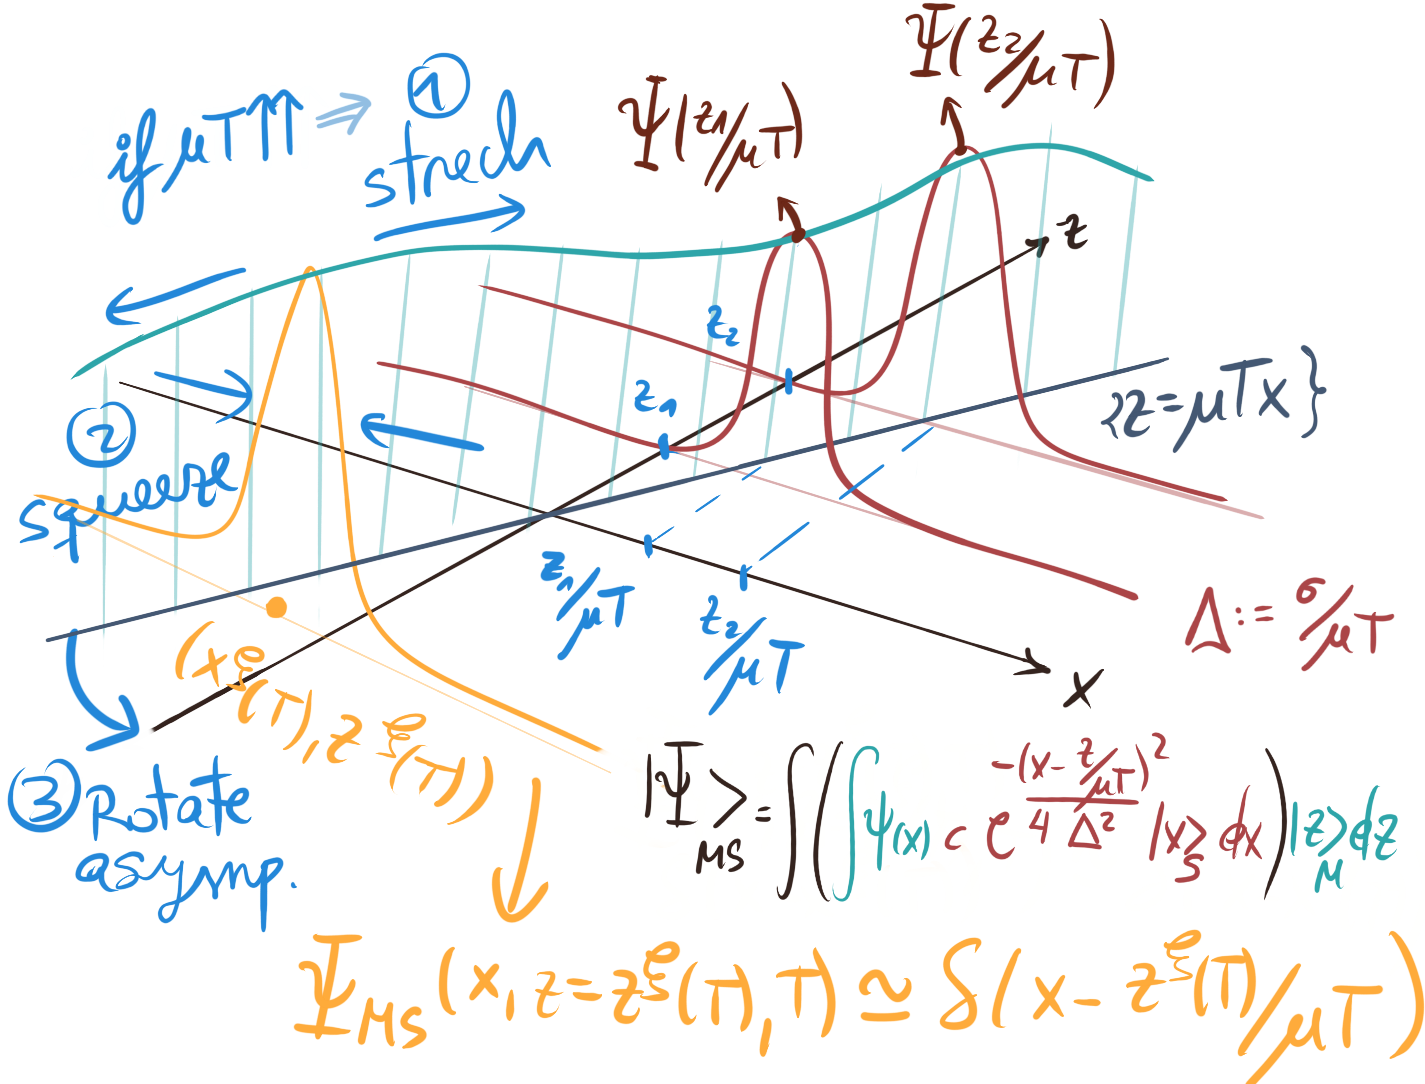 if μT⇈ ⇒ ① strech
Ψ(z₁/μT)
Ψ(z₂/μT)
z
z₂
z₁
{z=μTx}
② squeeze
z₁/μT
z₂/μT
x
Δ:= σ/μT
(x^ξ(T), z^ξ(T))
③ Rotate
asymp.
|Ψ>_MS = ∫(∫ψ(x) c e^{-(x-z/μT)²/4Δ²} |x>_S dx)|z>_M dz
Ψ_MS(x, z=z^ξ(T), T) ≃ δ(x- z^ξ(T)/μT)